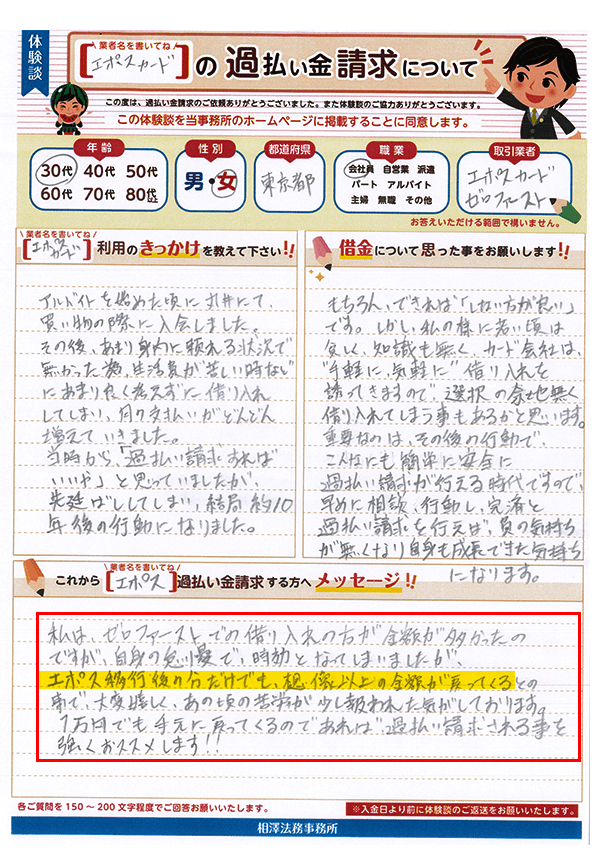 体験談
業者名を書いてね
[エポスカード]の過払い金請求について
この度は、過払い金請求のご依頼ありがとうございました。また体験談のご協力ありがとうございます。
この体験談を当事務所のホームページに掲載することに同意します。
年齢
30代 40代 50代
60代 70代 80代以上
性別
男・女
都道府県
東京都
職業
会社員 自営業 派遣
パート アルバイト
主婦 無職 その他
取引業者
エポスカード
ゼロファースト
お答えいただける範囲で構いません。
業者名を書いてね
[エポスカード]利用のきっかけを教えて下さい!!
アルバイトを始めた頃に丸井にて、
買い物の際に入会しました。
その後、あまり身内に頼れる状況で
無かった為、生活費が苦しい時など
にあまり良く考えずに借り入れ
してしまい、月の支払いがどんどん
増えていきました。
当時から「過払い請求すれば
いいや」と思っていましたが、
先延ばししてしまい、結局約10
年後の行動になりました。
借金について思った事をお願いします!!
もちろん、できれば「しない方が良い」
です。しかし私の様に若い頃は
貧しく、知識も無く、カード会社は、
"手軽に、気軽に"借り入れを
誘ってきますので、選択の余地無く
借り入れてしまう事もあるかと思います。
重要なのは、その後の行動で、
こんなにも簡単に安全に
過払い請求が行える時代ですので、
早めに相談、行動し、完済と
過払い請求を行えば、負の気持ち
が無くなり自身も成長できた気持ち
になります。
業者名を書いてね
これから[エポス]過払い金請求する方へメッセージ!!
私は、ゼロファーストでの借り入れの方が金額が多かったの
ですが、自身の怠慢で、時効となってしまいましたが、
エポス移行後の分だけでも、想像以上の金額が戻ってくるとの
事で、大変嬉しく、あの頃の苦労が少し報われた気がしております。
1万円でも手元に戻ってくるのであれば、過払い請求される事を
強くおススメします!!
各ご質問を150～200文字程度でご回答お願いいたします。
※入金日より前に体験談のご返送をお願いいたします。
相澤法務事務所